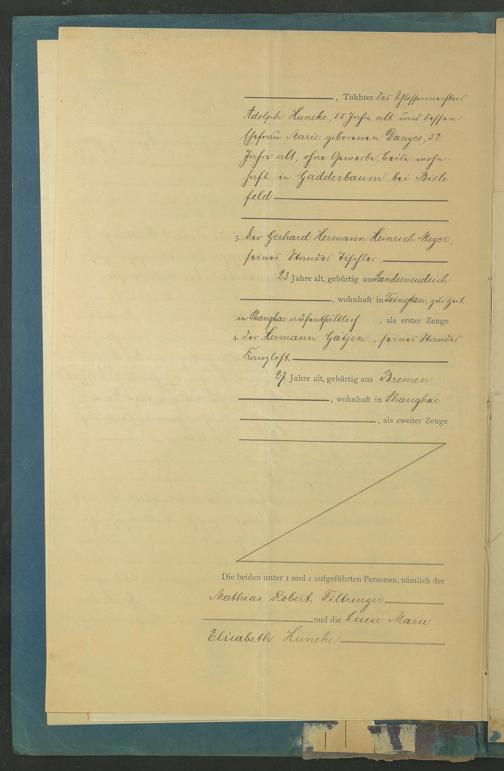 , Tochter des Schlossermeisters
Adolph Huneke, 55 Jahre alt und dessen
Ehefrau Marie geborenen Danger, 52
Jahre alt, ohne Gewerbe, beide wohn-
haft in Gadderbaum bei Biele-
feld
3. der Gerhard Hermann Heinrich Meyer,
seines Standes Tischler,
23 Jahre alt, gebürtig aus
, wohnhaft in Tsingtau, zur Zeit
in Shanghai aufenthaltlich , als erster Zeuge
4. der Hermann Gätjen, seines Standes
Kanzlist
27 Jahre alt, gebürtig aus Bremen
, wohnhaft in Shanghai
, als zweiter Zeuge
Die beiden unter 1 und 2 aufgeführten Personen, nämlich der
Mathias Robert Filtzinger
und die Luise Marie
Elisabeth Huneke